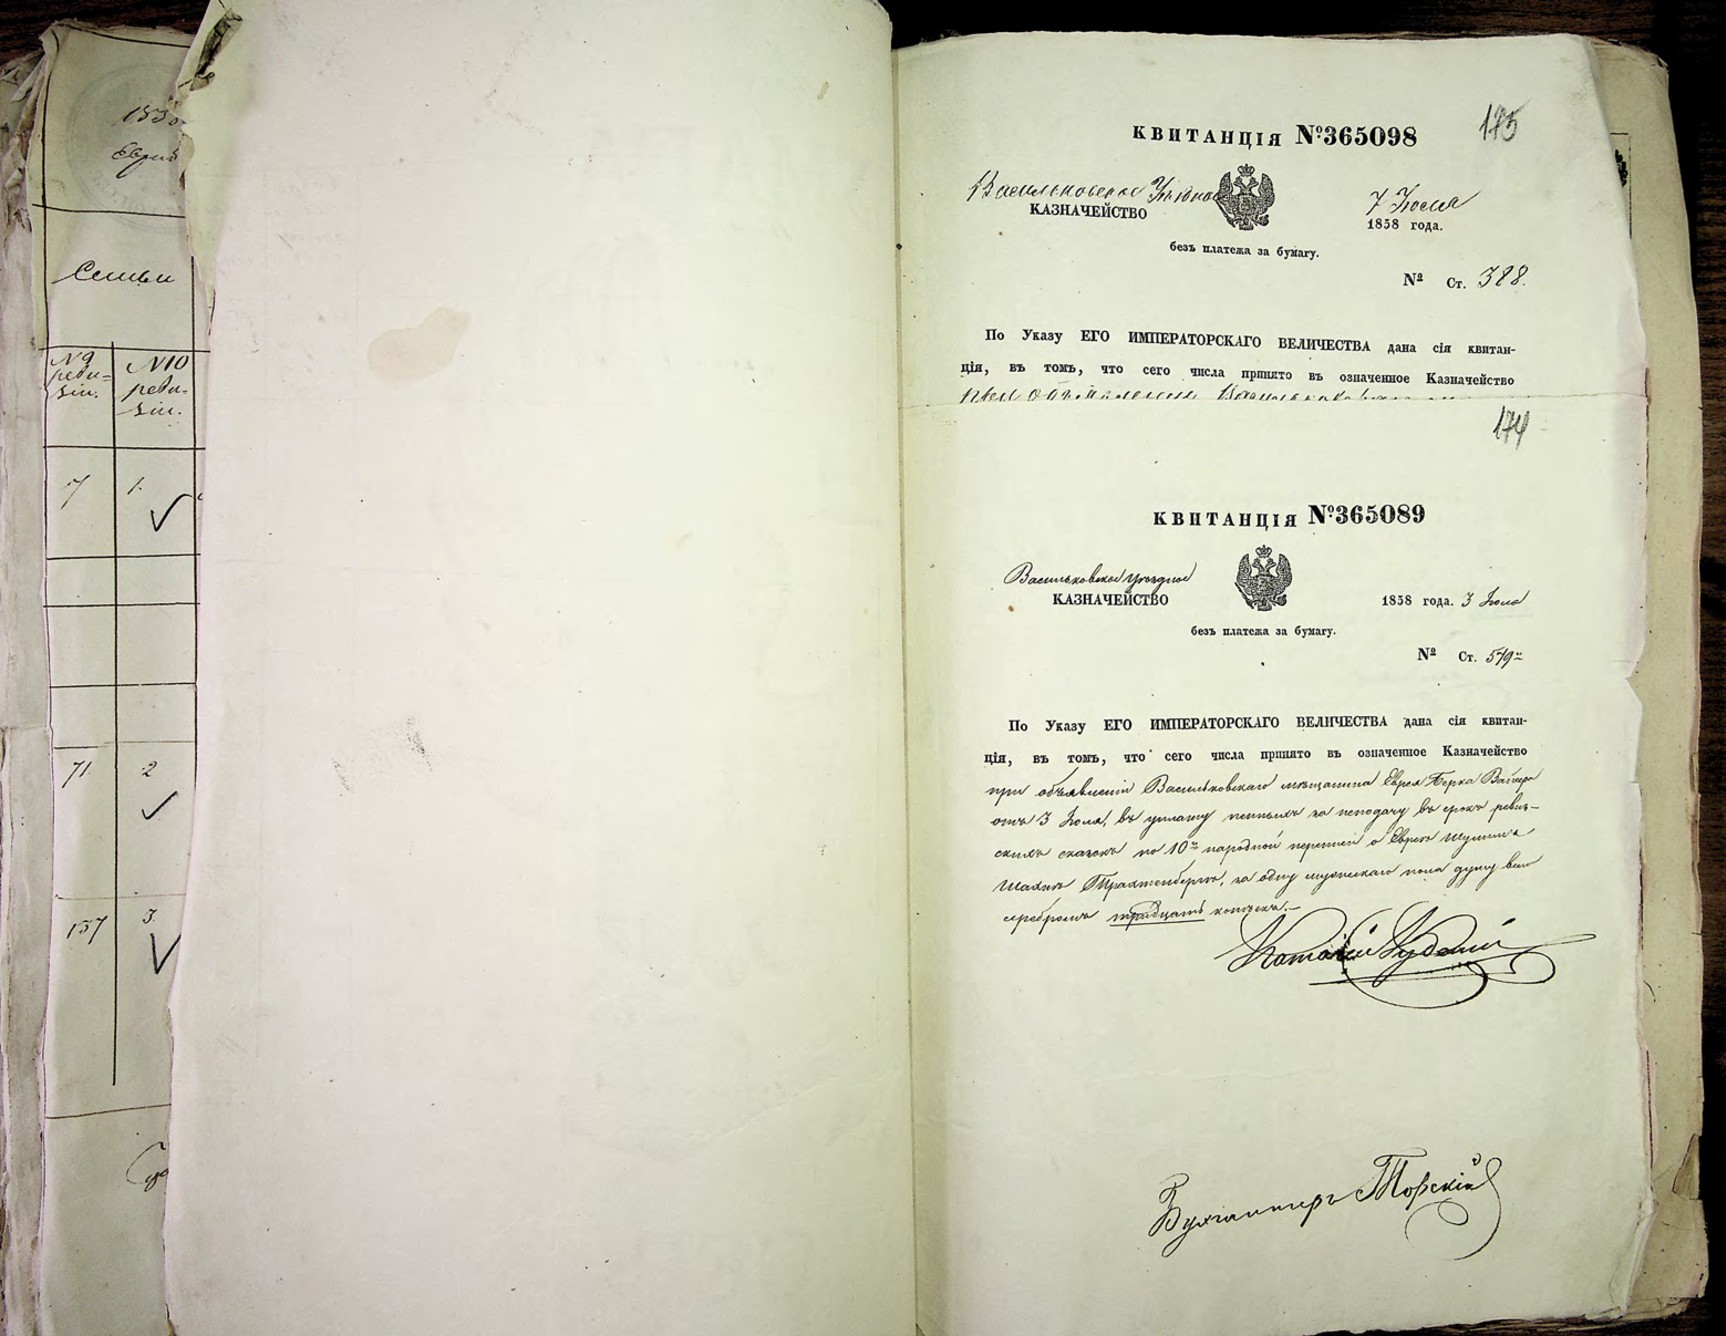 Семьи
N 9
реви=
зіи.
N 10
реви-
зіи.
7
1.
71.
2
137
3.
175
КВИТАНЦІЯ №365098
Васильковское Уѣздное
КАЗНАЧЕЙСТВО
7 Іюля
1858 года.
безъ платежа за бумагу.
№ Ст. 388.
По Указу ЕГО ИМПЕРАТОРСКАГО ВЕЛИЧЕСТВА дана сія квитан-
ція, въ томъ, что сего числа принято въ означенное Казначейство
при объявленіи
174
КВИТАНЦІЯ №365089
Васильковское Уѣздное
КАЗНАЧЕЙСТВО
1858 года. 3 Іюля
безъ платежа за бумагу.
№ Ст. 579
По Указу ЕГО ИМПЕРАТОРСКАГО ВЕЛИЧЕСТВА дана сія квитан-
ція, въ томъ, что сего числа принято въ означенное Казначейство
при объявленіи Васильковскаго мѣщанина Еврея Берка
отъ 3 Іюля, въ уплату пенныхъ за неподачу въ срокъ ревиз-
скихъ сказокъ по 10й народной переписи о Евреѣ
Трахтенбергѣ, за одну мужескаго пола душу
серебромъ тридцать копѣекъ.—
Бухгалтеръ Торскій